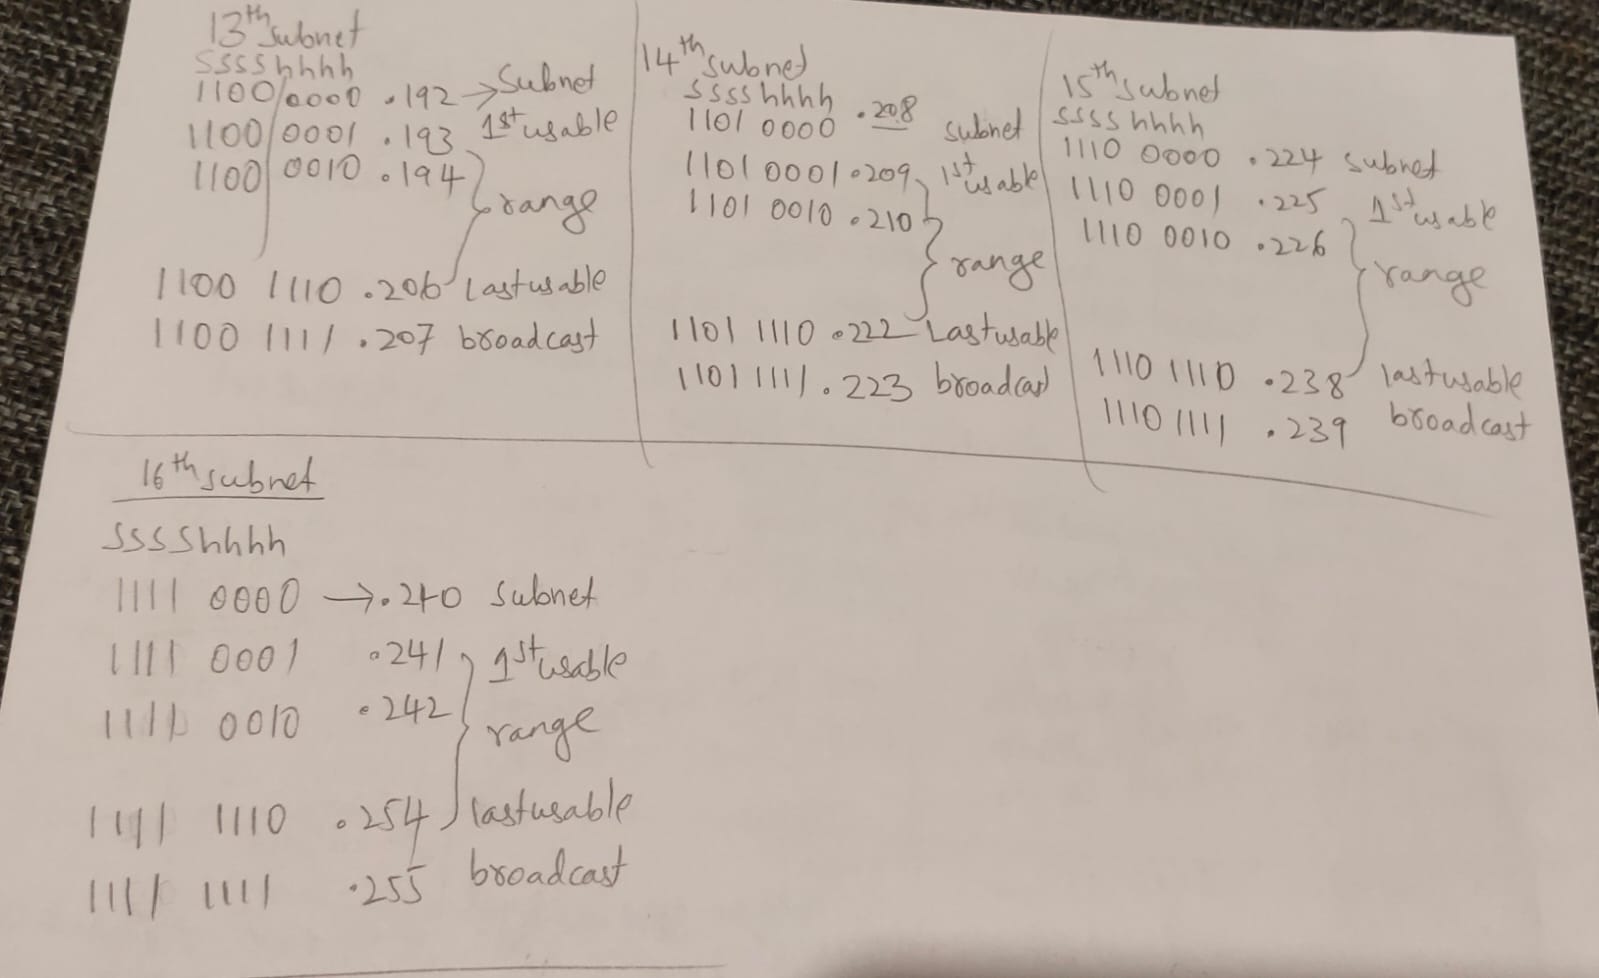 13th subnet
sssshhhh
1100 0000 .192 → Subnet
1100 0001 .193 1st usable
1100 0010 .194
range
1100 1110 .206 Last usable
1100 1111 .207 broadcast
14th subnet
sssshhhh
1101 0000 .208 subnet
1101 0001 .209 1st usable
1101 0010 .210
range
1101 1110 .222 Last usable
1101 1111 .223 broadcast
15th subnet
ssss hhhh
1110 0000 .224 subnet
1110 0001 .225 1st usable
1110 0010 .226
range
1110 1110 .238 last usable
1110 1111 .239 broadcast
16th subnet
sssshhhh
1111 0000 → .240 subnet
1111 0001 .241 1st usable
1111 0010 .242
range
1111 1110 .254 last usable
1111 1111 .255 broadcast